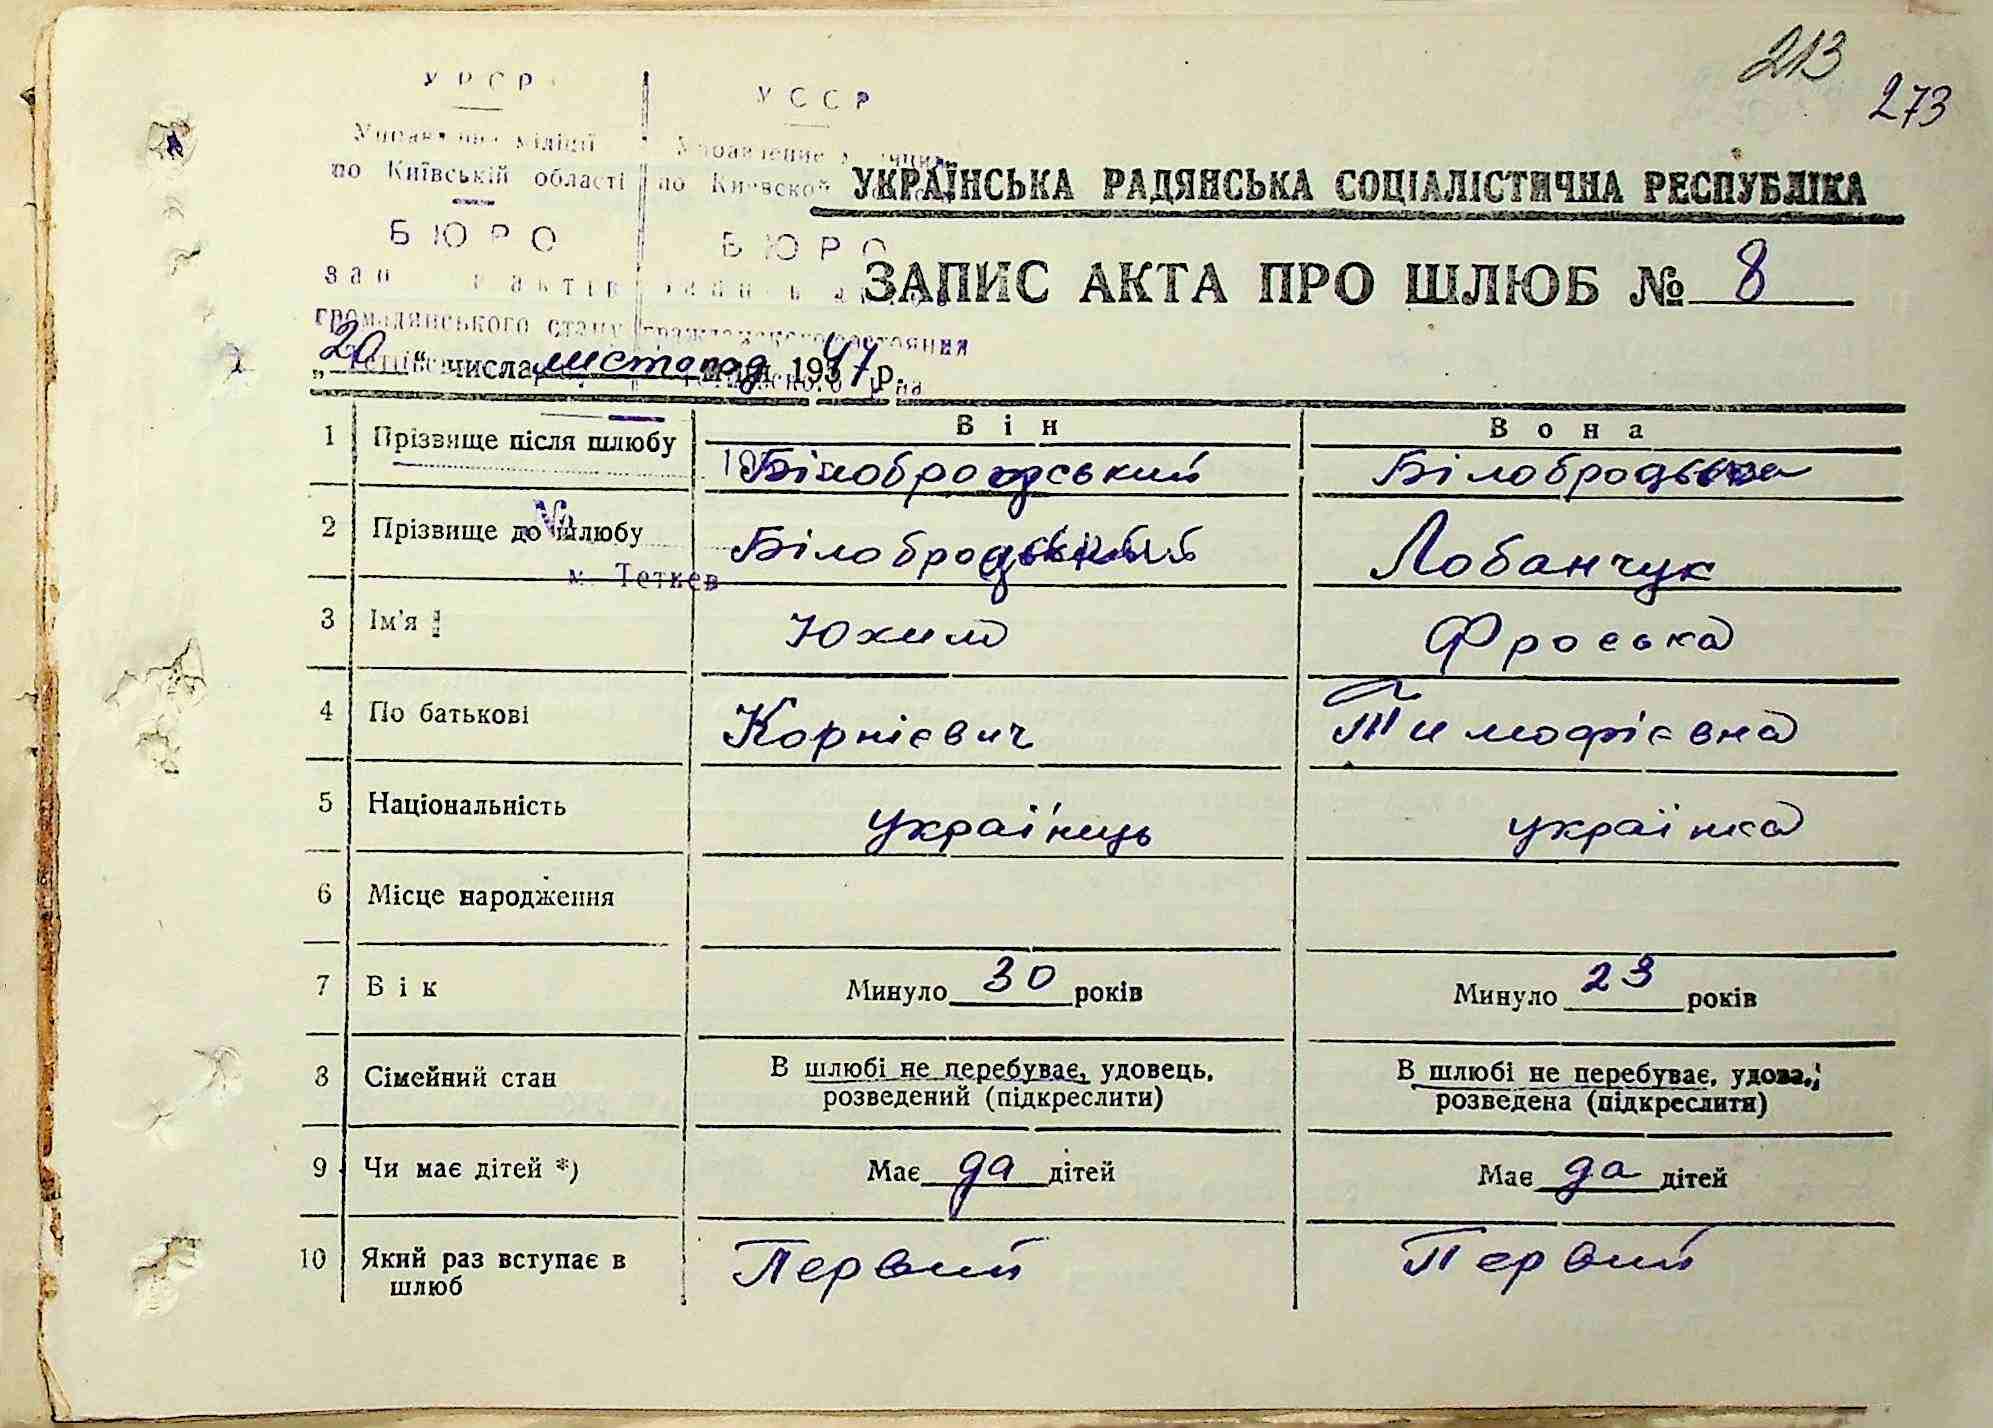 213
273
УРСР
УССР
по Київській області
по Киевской
БЮРО
БЮРО
УКРАЇНСЬКА РАДЯНСЬКА СОЦІАЛІСТИЧНА РЕСПУБЛІКА
ЗАПИС АКТА ПРО ШЛЮБ № 8
громадянського стану гражданского состояния
„20“ числа листопад 1947 р.
Він
Вона
1 Прізвище після шлюбу Білобродський Білобродська
2 Прізвище до шлюбу Білобродський Лобанчук
№
м. Тетиев
3 Ім'я Юхим Фроська
4 По батькові Корнієвич Тимофієвна
5 Національність українець українка
6 Місце народження
7 Вік Минуло 30 років Минуло 23 років
8 Сімейний стан В шлюбі не перебуває, удовець, В шлюбі не перебуває, удова,
розведений (підкреслити) розведена (підкреслити)
9 Чи має дітей *) Має да дітей Має да дітей
10 Який раз вступає в Первий Первий
шлюб